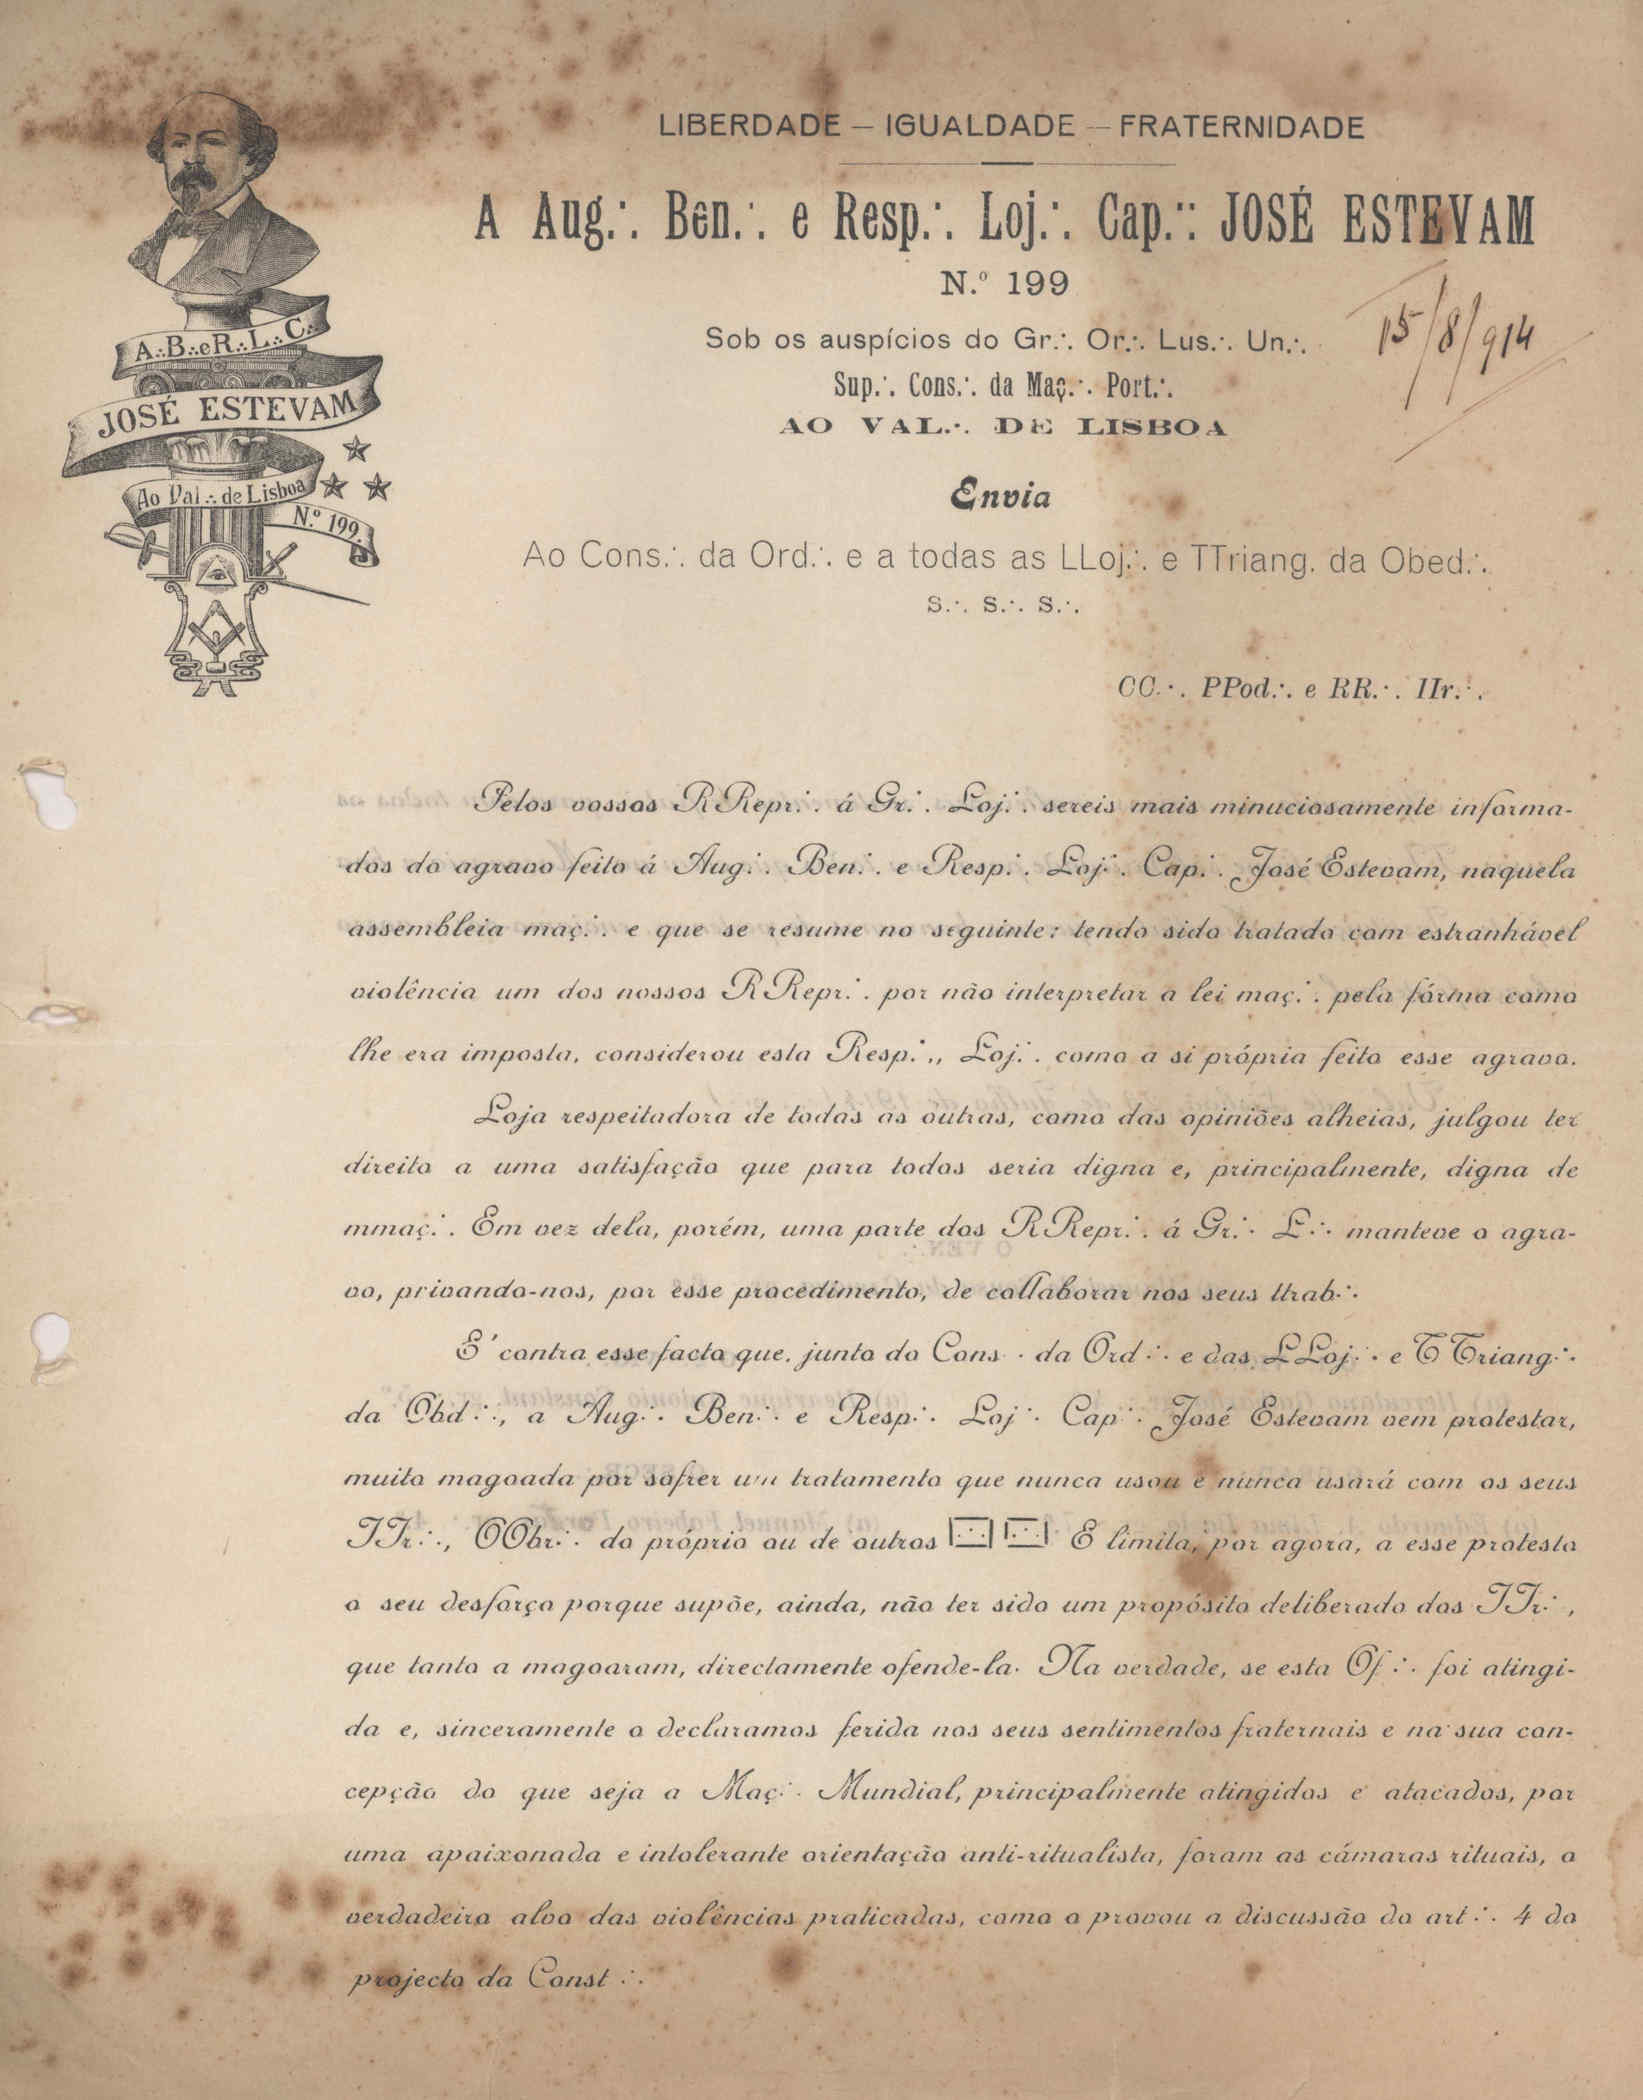 LIBERDADE — IGUALDADE — FRATERNIDADE
A Aug.∴ Ben.∴ e Resp.∴ Loj.∴ Cap.∷ JOSÉ ESTEVAM
N.º 199
Sob os auspícios do Gr.∴ Or.∴ Lus.∴ Un.∴
15/8/914
Sup.∴ Cons.∴ da Maç.∴ Port.∴
AO VAL.∴ DE LISBOA
A∴B∴eR∴L∴C∴
JOSÉ ESTEVAM
Ao Val∴ de Lisboa
N.º 199.
Envia
Ao Cons.∴ da Ord.∴ e a todas as LLoj.∴ e TTriang. da Obed.∴
S.∴ S.∴ S.∴
CC.∴ PPod.∴ e RR.∴ IIr.∴
Pelos vossos RRepr.∴ á Gr.∴ Loj.∴ sereis mais minuciosamente informa-
dos do agravo feito á Aug.∴ Ben.∴ e Resp.∴ Loj.∴ Cap.∴ José Estevam, naquela
assembleia maç.∴ e que se resume no seguinte: tendo sido tratado com estranhável
violência um dos nossos RRepr.∴ por não interpretar a lei maç.∴ pela fórma como
lhe era imposta, considerou esta Resp.∴, Loj.∴ como a si própria feito esse agravo.
Loja respeitadora de todas as outras, como das opiniões alheias, julgou ter
direito a uma satisfação que para todos seria digna e, principalmente, digna de
mmaç.∴ Em vez dela, porém, uma parte dos RRepr.∴ á Gr.∴ L∴ manteve o agra-
vo, privando-nos, por esse procedimento, de collaborar nos seus ttrab.∴
E' contra esse facto que. junto do Cons∴ da Ord∴ e das LLoj∴ e TTriang∴
da Obd∴, a Aug∴ Ben∴ e Resp∴ Loj∴ Cap∴ José Estevam vem protestar,
muito magoada por sofrer um tratamento que nunca usou e nunca usará com os seus
IIr∴, OObr∴ do próprio ou de outros |∴| |∴| E limita, por agora, a esse protesto
o seu desforço porque supõe, ainda, não ter sido um propósito deliberado dos IIr∴,
que tanto a magoaram, directamente ofende-la. Na verdade, se esta Of∴ foi atingi-
da e, sinceramente o declaramos ferida nos seus sentimentos fraternais e na sua con-
cepção do que seja a Maç∴ Mundial, principalmente atingidos e atacados, por
uma apaixonada e intolerante orientação anti-ritualista, foram as câmaras rituais, o
verdadeiro alvo das violências praticadas, como o provou a discussão do art∴ 4 do
projecto da Const∴